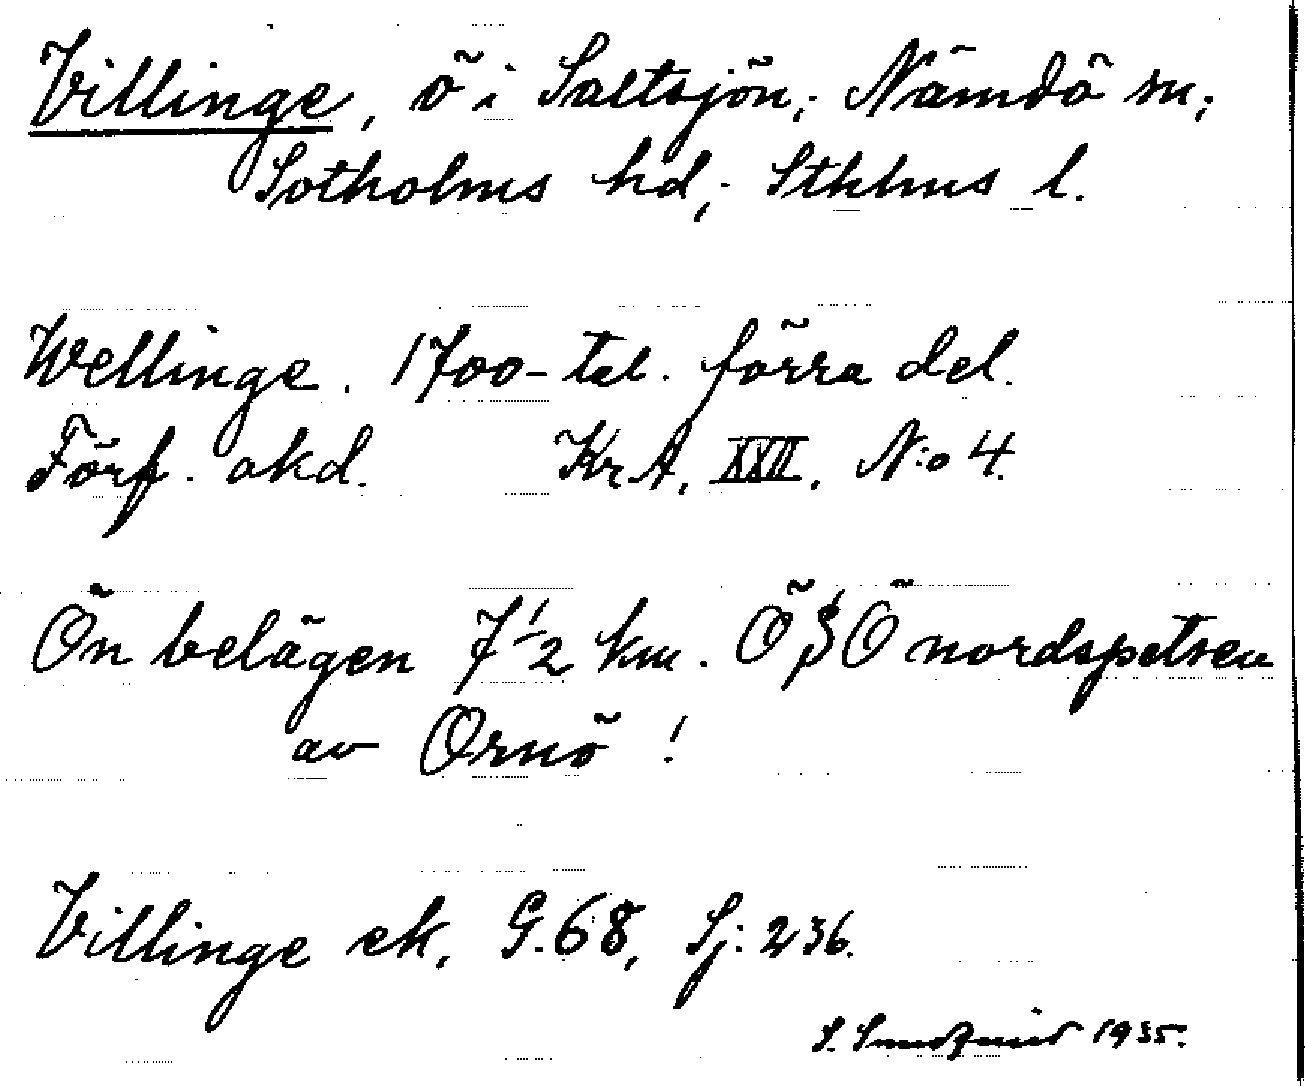 Villinge, ö i Saltsjön; Nämdö sn;
Sotholms hd; Sthlms l.
Wellinge. 1700-tal. förra del.
Förf. okd. Kr.A. XVII. N:o 4.
Ön belägen 7 1/2 km. ÖSÖ nordspetsen
av Ornö!
Villinge ek. G.68, Sj: 236.
S. 1935.